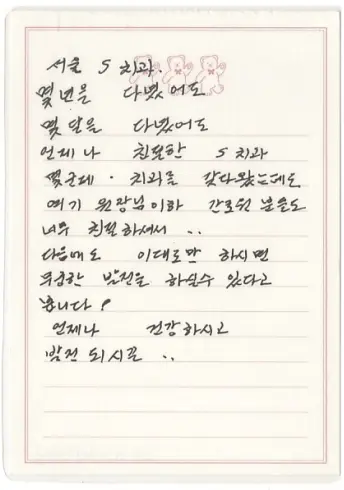 서울 S 치과.
몇 년을 다녔어도
몇 달을 다녔어도
언제나 친절한 S 치과
몇군데 · 치과를 갔다왔는데도
여기 원장님이하 간호원 분들도
너무 친절하셔서 ..
다음에도 이대로만 하시면
무궁한 발전을 하실수 있다고
봅니다!
언제나 건강하시고
발전 되시길 ..